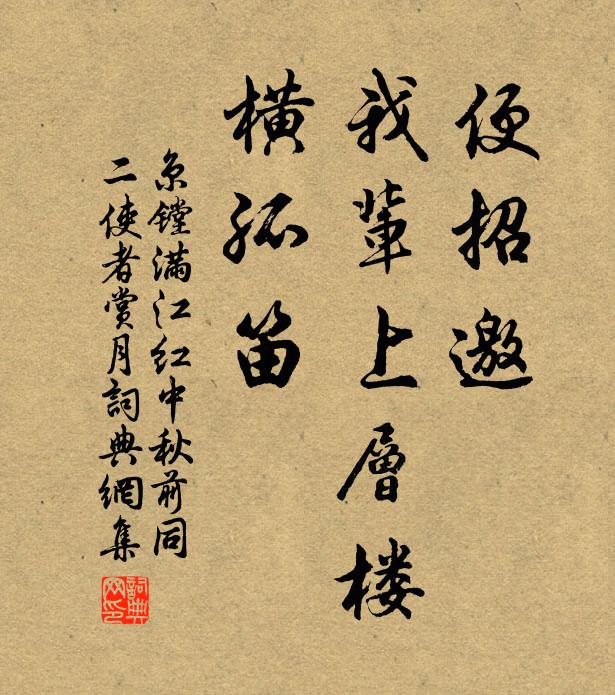 便招邀
我輩上層楼
横孤笛
京鏜满江红中秋前同
二使者赏月詞典網集
詞典网印